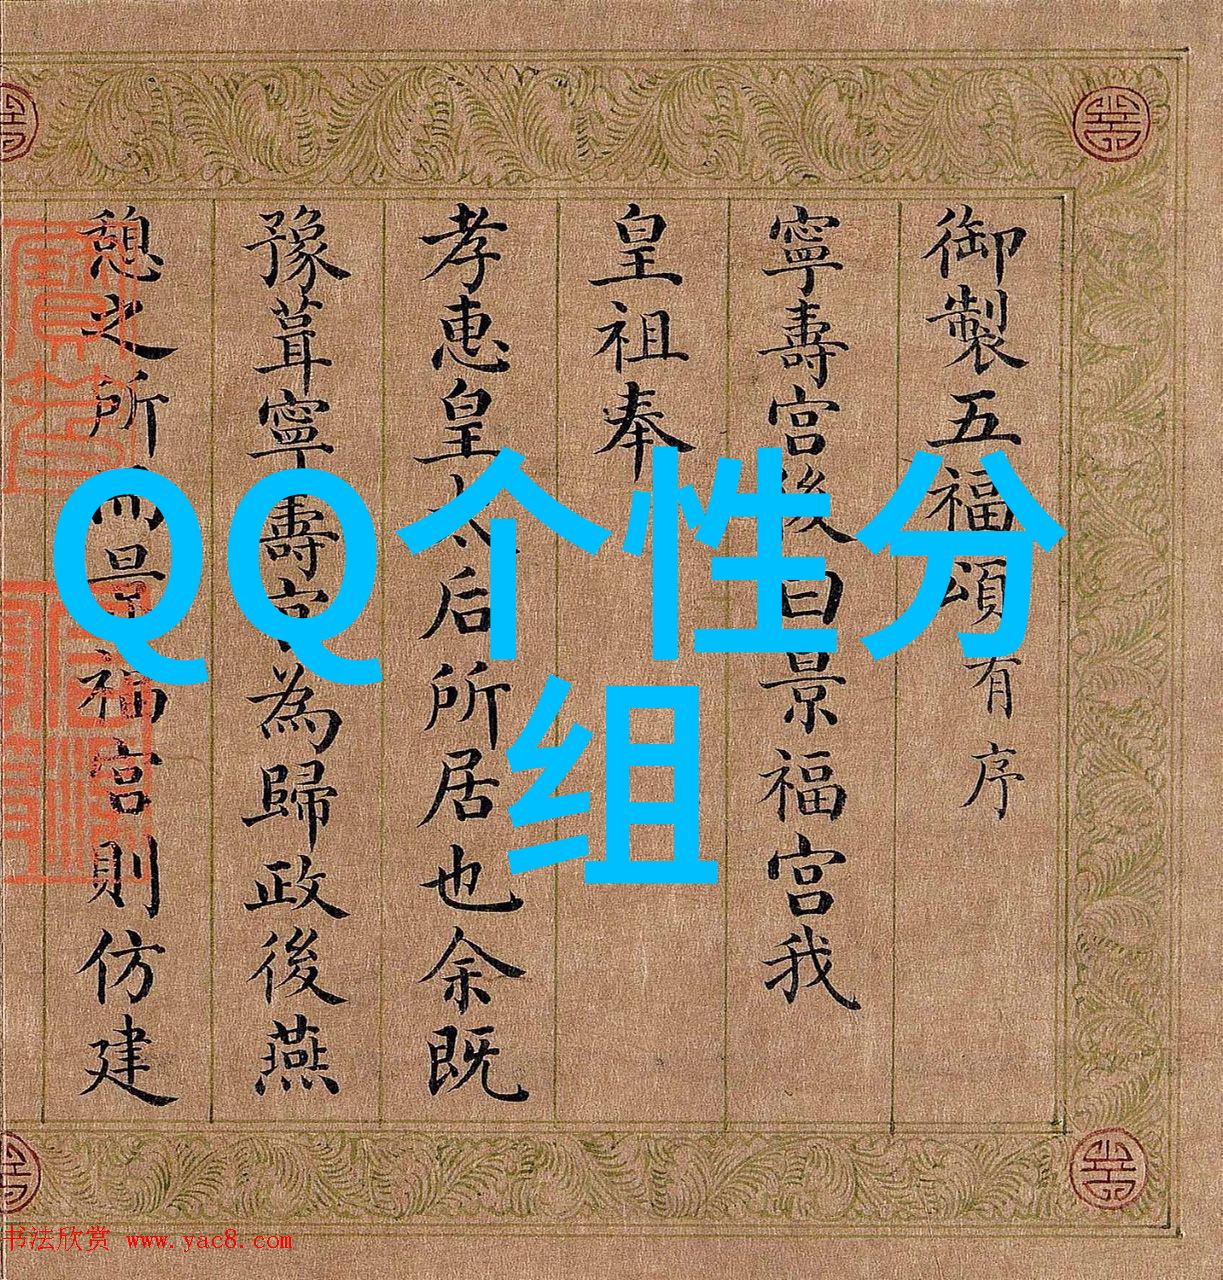 御製五福頌有序
寧壽宮後曰景福宮我
皇祖奉
孝惠皇太后所居也余既
豫葺寧壽宮為歸政後燕
憩之所而景福宮則仿建
QQ个性分
组
书法欣赏 www.yac8.com